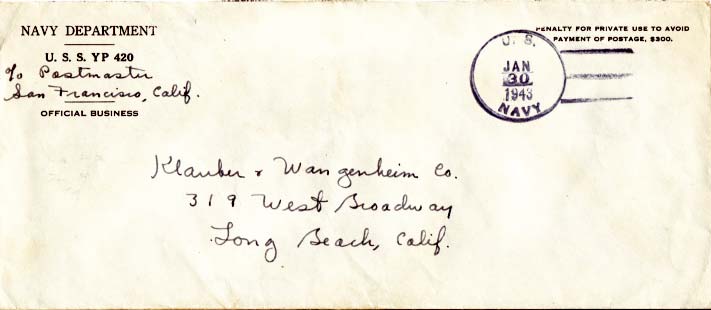 NAVY DEPARTMENT
U. S. S. YP 420
c/o Postmaster
San Francisco, Calif.
OFFICIAL BUSINESS
PENALTY FOR PRIVATE USE TO AVOID
PAYMENT OF POSTAGE, $300.
U. S.
JAN
30
1943
NAVY
Klauber & Wangenheim Co.
319 West Broadway
Long Beach, Calif.